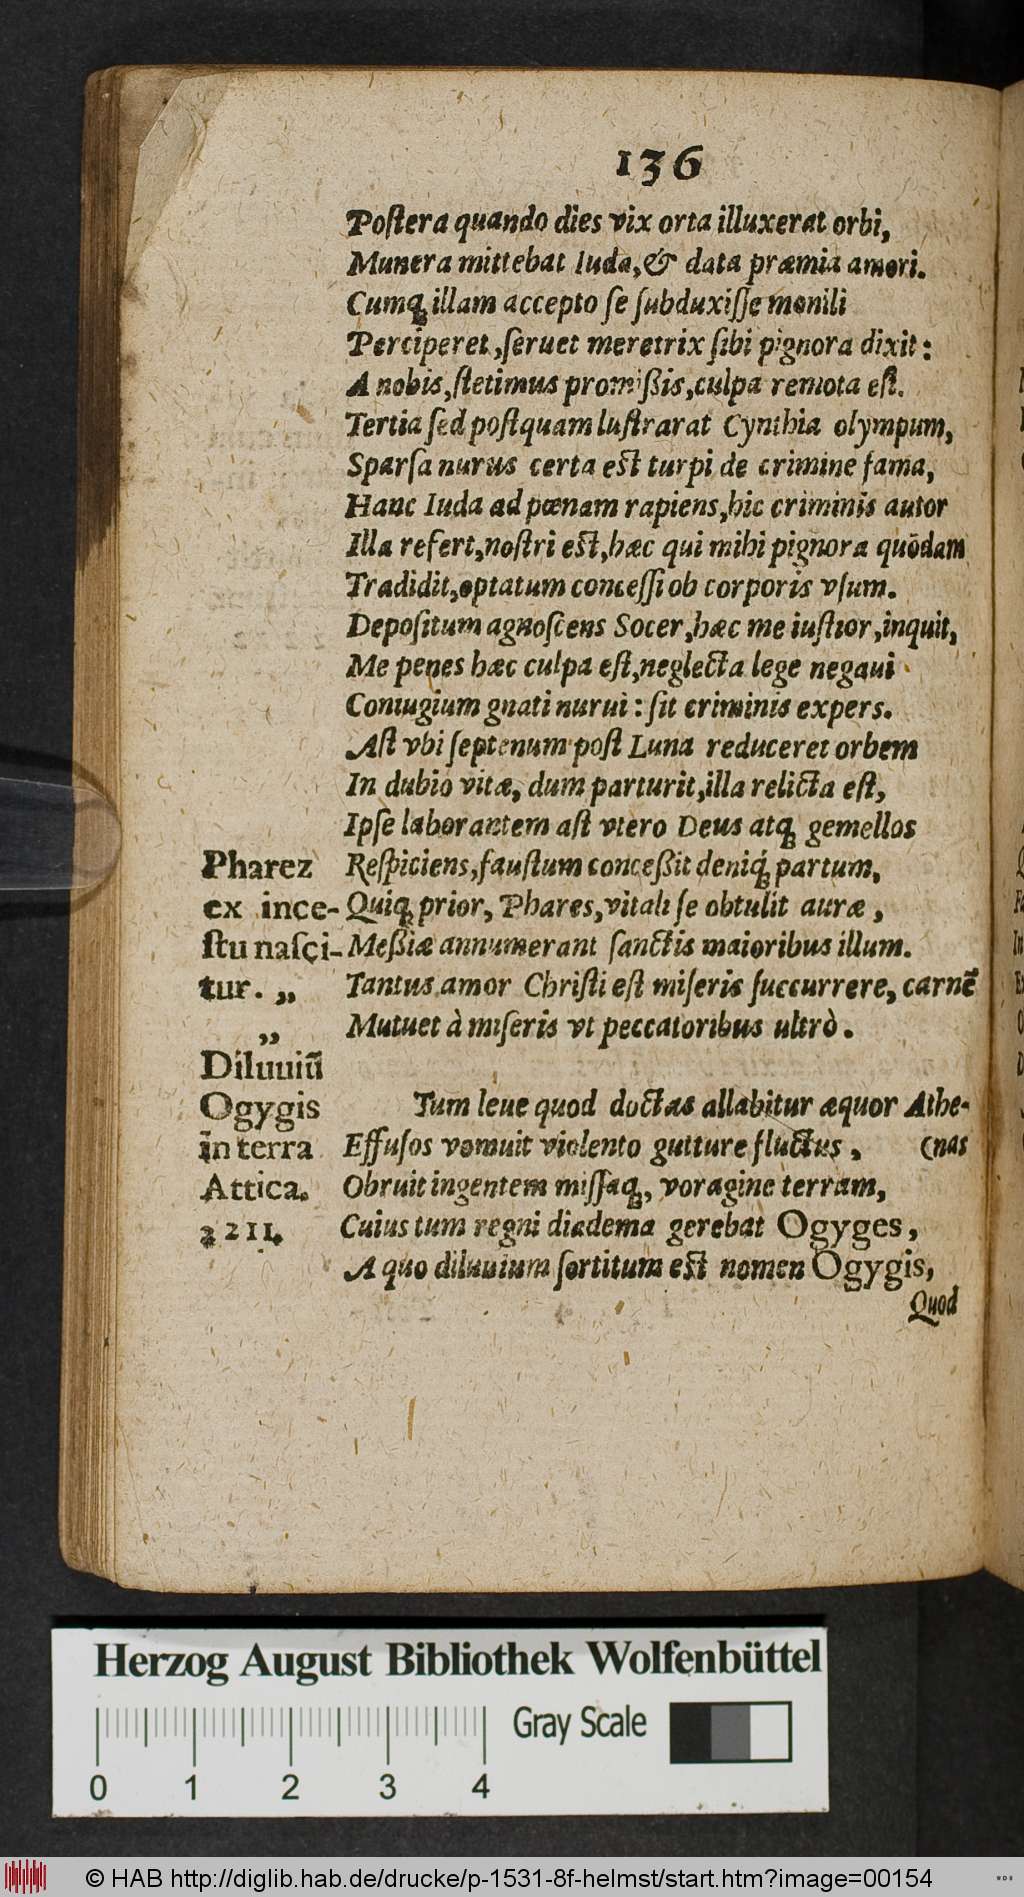 136
Postera quando dies vix orta illuxerat orbi,
Munera mittebat Iuda, & data præmia amori.
Cumq́ illam accepto se subduxisse monili
Perciperet, seruet meretrix sibi pignora dixit:
A nobis, stetimus promißis, culpa remota est.
Tertia sed postquam lustrarat Cynthia olympum,
Sparsa nurus certa est turpi de crimine fama,
Hanc Iuda ad pœnam rapiens, hic criminis autor
Illa refert, nostri est, hæc qui mihi pignora quōdam
Tradidit, optatum concessi ob corporis vsum.
Depositum agnoscens Socer, hæc me iustior, inquit,
Me penes hæc culpa est, neglecta lege negaui
Coniugium gnati nurui: sit criminis expers.
Ast vbi septenum post Luna reduceret orbem
In dubio vitæ, dum parturit, illa relicta est,
Ipse laborantem ast vtero Deus atq; gemellos
Pharez Respiciens, faustum conceßit deniq́; partum,
ex ince- Quiq; prior, Phares, vitali se obtulit auræ,
stu nasci- Meßiæ annumerant sanctis maioribus illum.
tur. „ Tantus amor Christi est miseris succurrere, carnē
„ Mutuet à miseris vt peccatoribus ultrò.
Diluuiū
Ogygis Tum leue quod doctas allabitur æquor Athe-
in terra Effusos vomuit violento gutture fluctus, (nas
Attica. Obruit ingentem missaq;, voragine terram,
2211. Cuius tum regni diadema gerebat Ogyges,
A quo diluuium sortitum est nomen Ogygis,
Quod
Herzog August Bibliothek Wolfenbüttel
Gray Scale
0 1 2 3 4
© HAB http://diglib.hab.de/drucke/p-1531-8f-helmst/start.htm?image=00154